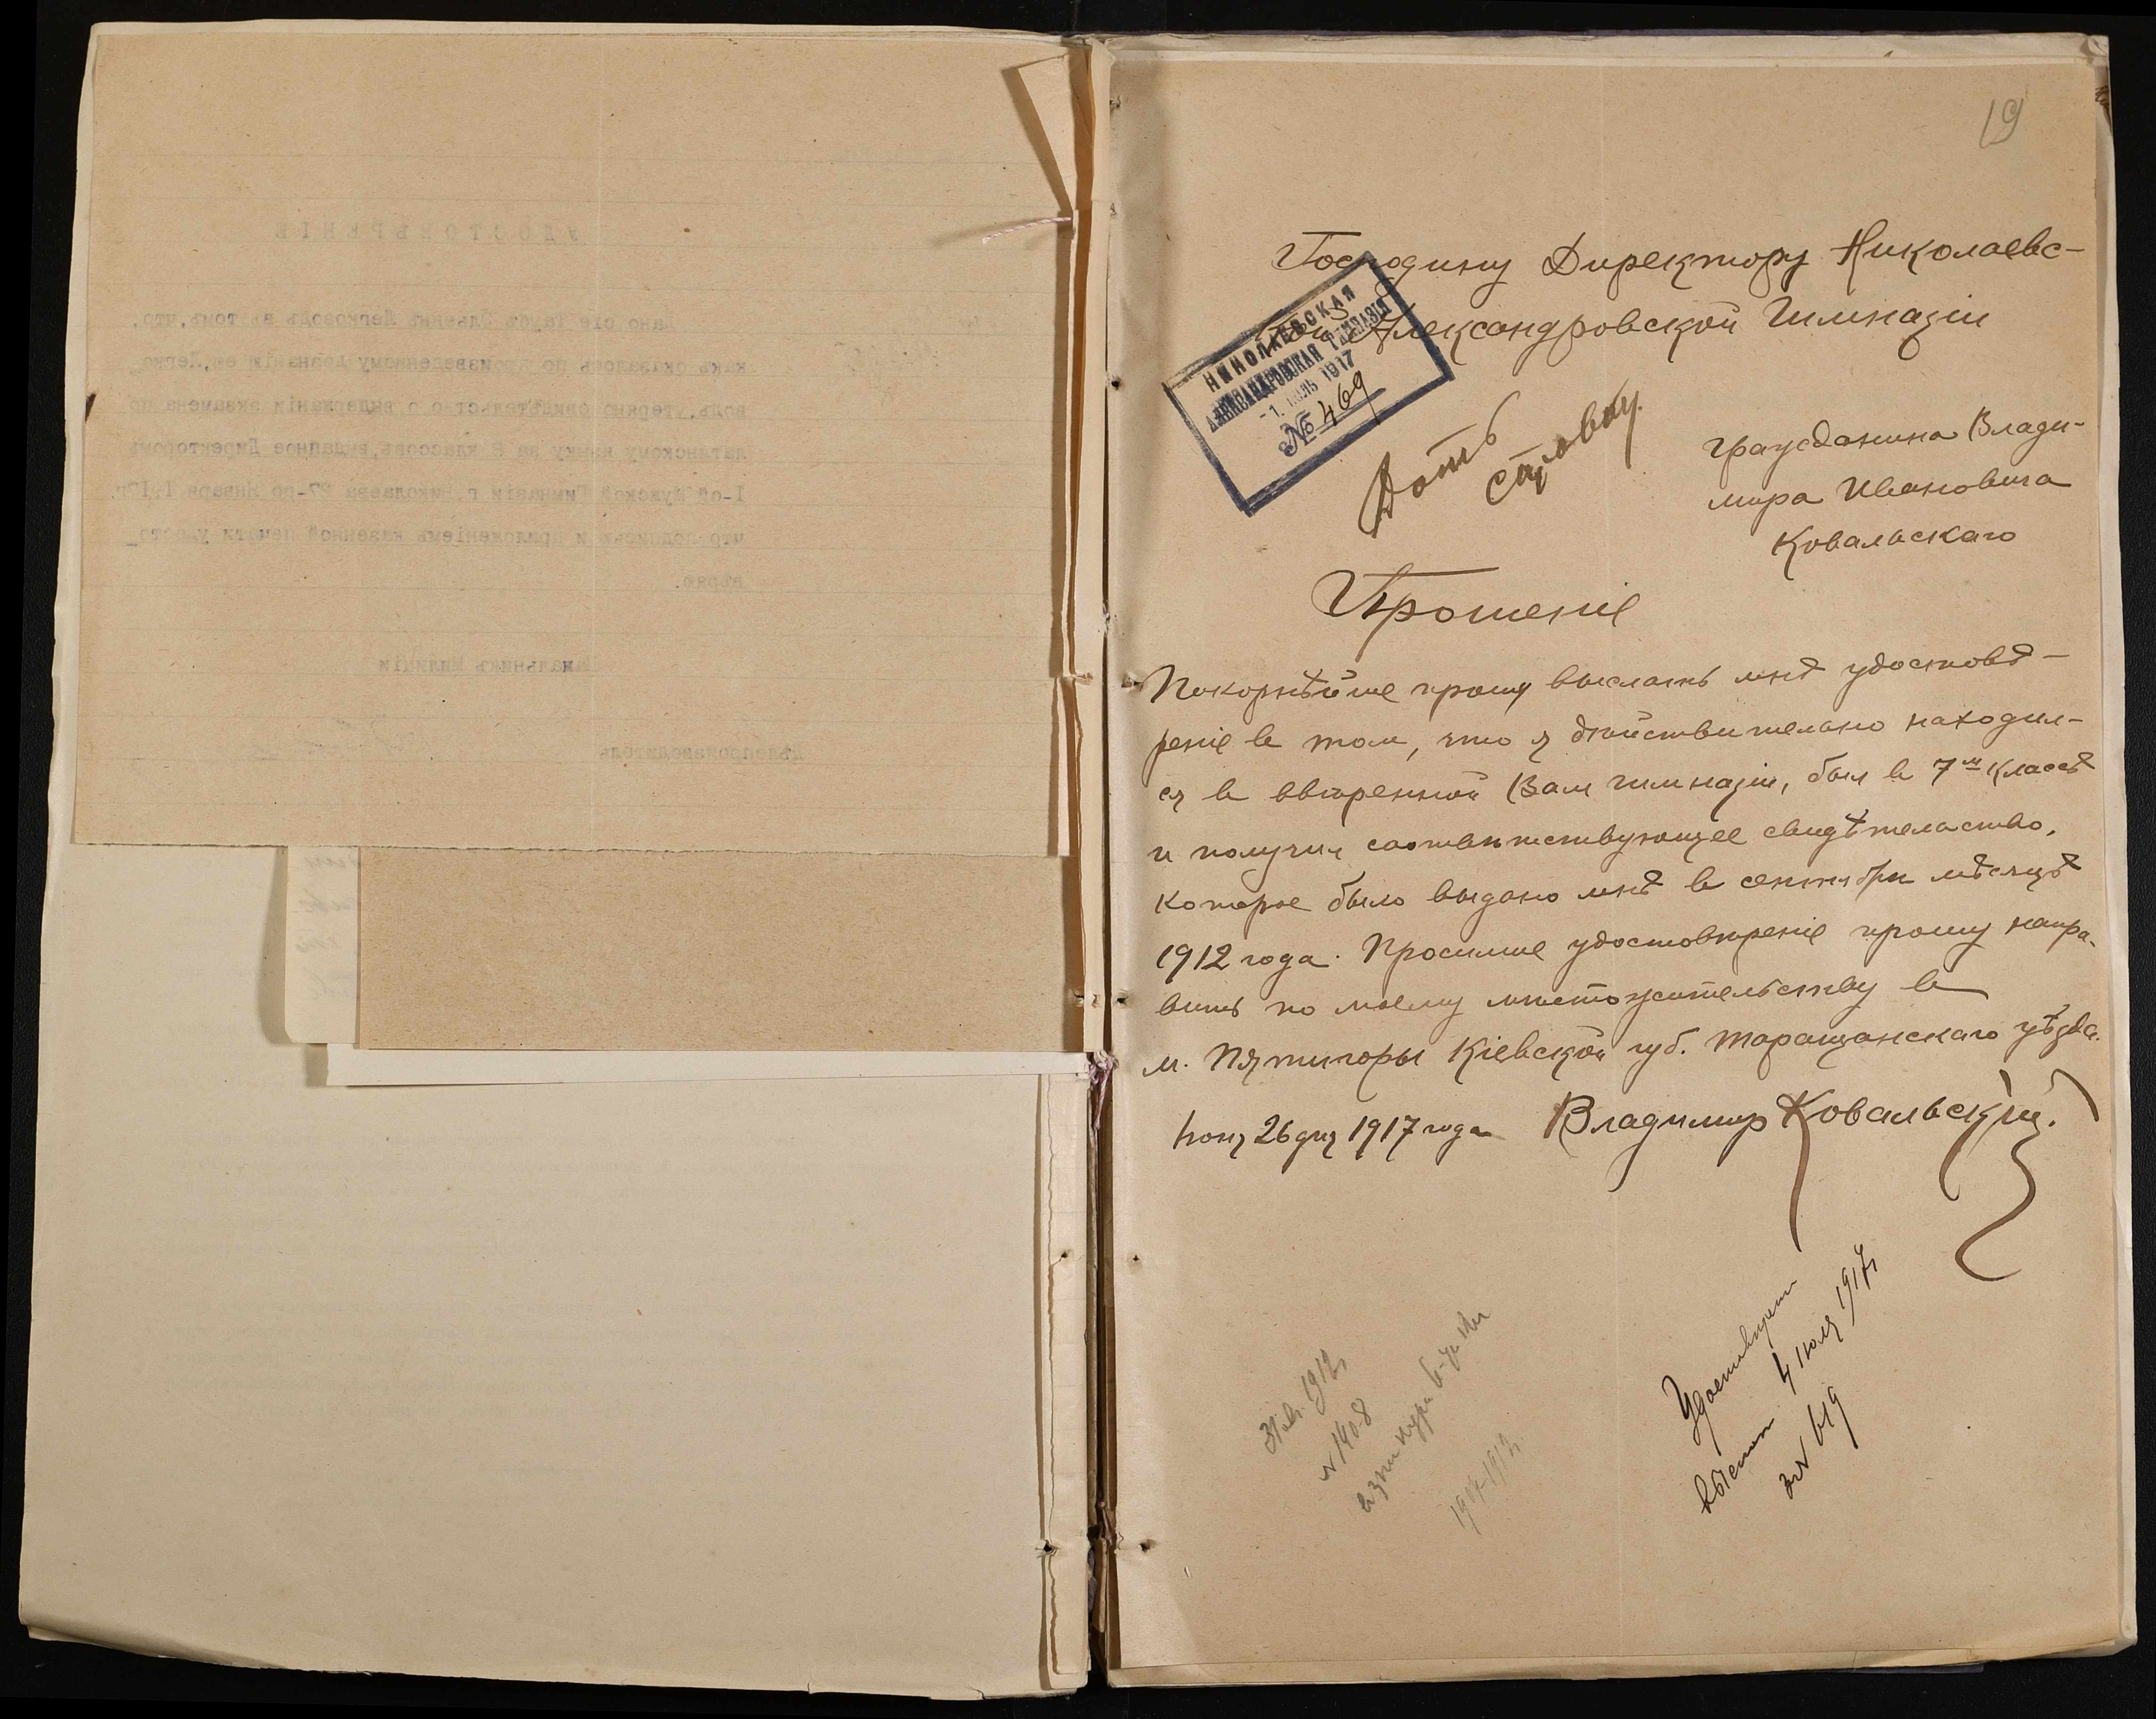 19
Господину Директору Николаевс-
кой Александровской Гимназіи
НИКОЛАЕВСКАЯ
АЛЕКСАНДРОВСКАЯ ГИМНАЗІЯ
-1. ІЮЛЬ 1917
№ 469
Дать
справку.
Гражданина Влади-
мира Ивановича
Ковальскаго
Прошеніе
Покорнѣйше прошу выслать мнѣ удостовѣ-
реніе в том, что я дѣйствительно находил-
ся в ввѣренной Вам гимназіи, был в 7м классѣ
и получил соотвѣтствующее свидѣтельство,
которое было выдано мнѣ в сентябрѣ мѣсяцѣ
1912 года. Просимое удостовѣреніе прошу напра-
вить по моему мѣстожительству в
м. Пятигоры Кіевской губ. Таращанскаго уѣзда.
Іюня 26 дня 1917 года Владимир Ковальскій.
Удостовѣрен
выслан 4 июля 1917 г
за № 619
31 авг. 1912 г
№ 1408
1912 г.
УДОСТОВѢРЕНІЕ
Дано сіе въ томъ, что,
какъ оказалось по произведенному дознанію ею, Легко-
водъ, утеряно свидѣтельство о выдержаніи экзамена по
латинскому языку за 6 классовъ, выданное Директоромъ
I-ой Мужской Гимназіи г. Николаева 27-го Января
что подписью и приложеніемъ казенной печати удосто-
вѣряю.
Начальникъ Милиціи
Дѣлопроизводитель